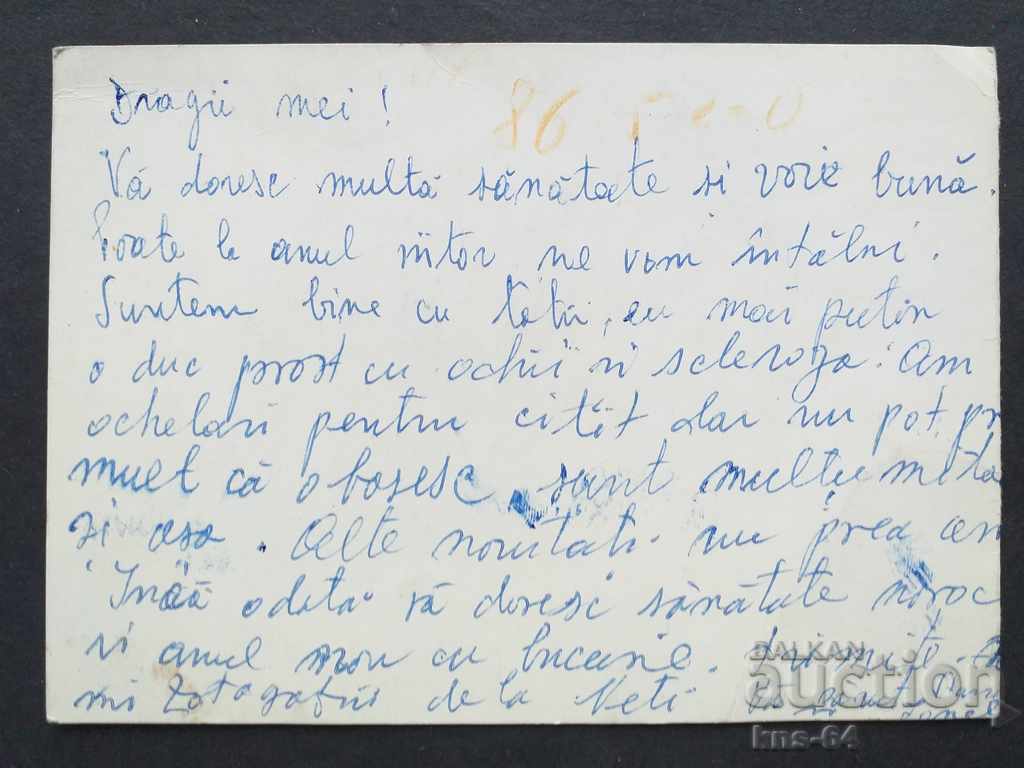 Dragii mei!
86
Vă doresc multă sănătate si voie bună.
Poate la anul viitor ne vom întâlni.
Suntem bine cu totii, eu mai putin
o duc prost cu ochii si scleroza. Am
ochelari pentru citit dar nu pot pr
mult că obosesc, sunt multumita
si asa. Alte noutati nu prea am
Încă odata vă doresc sănătate noroc
si anul nou cu bucurie.
mi fotografii de la Neti
BALKAN
auction
kns-64